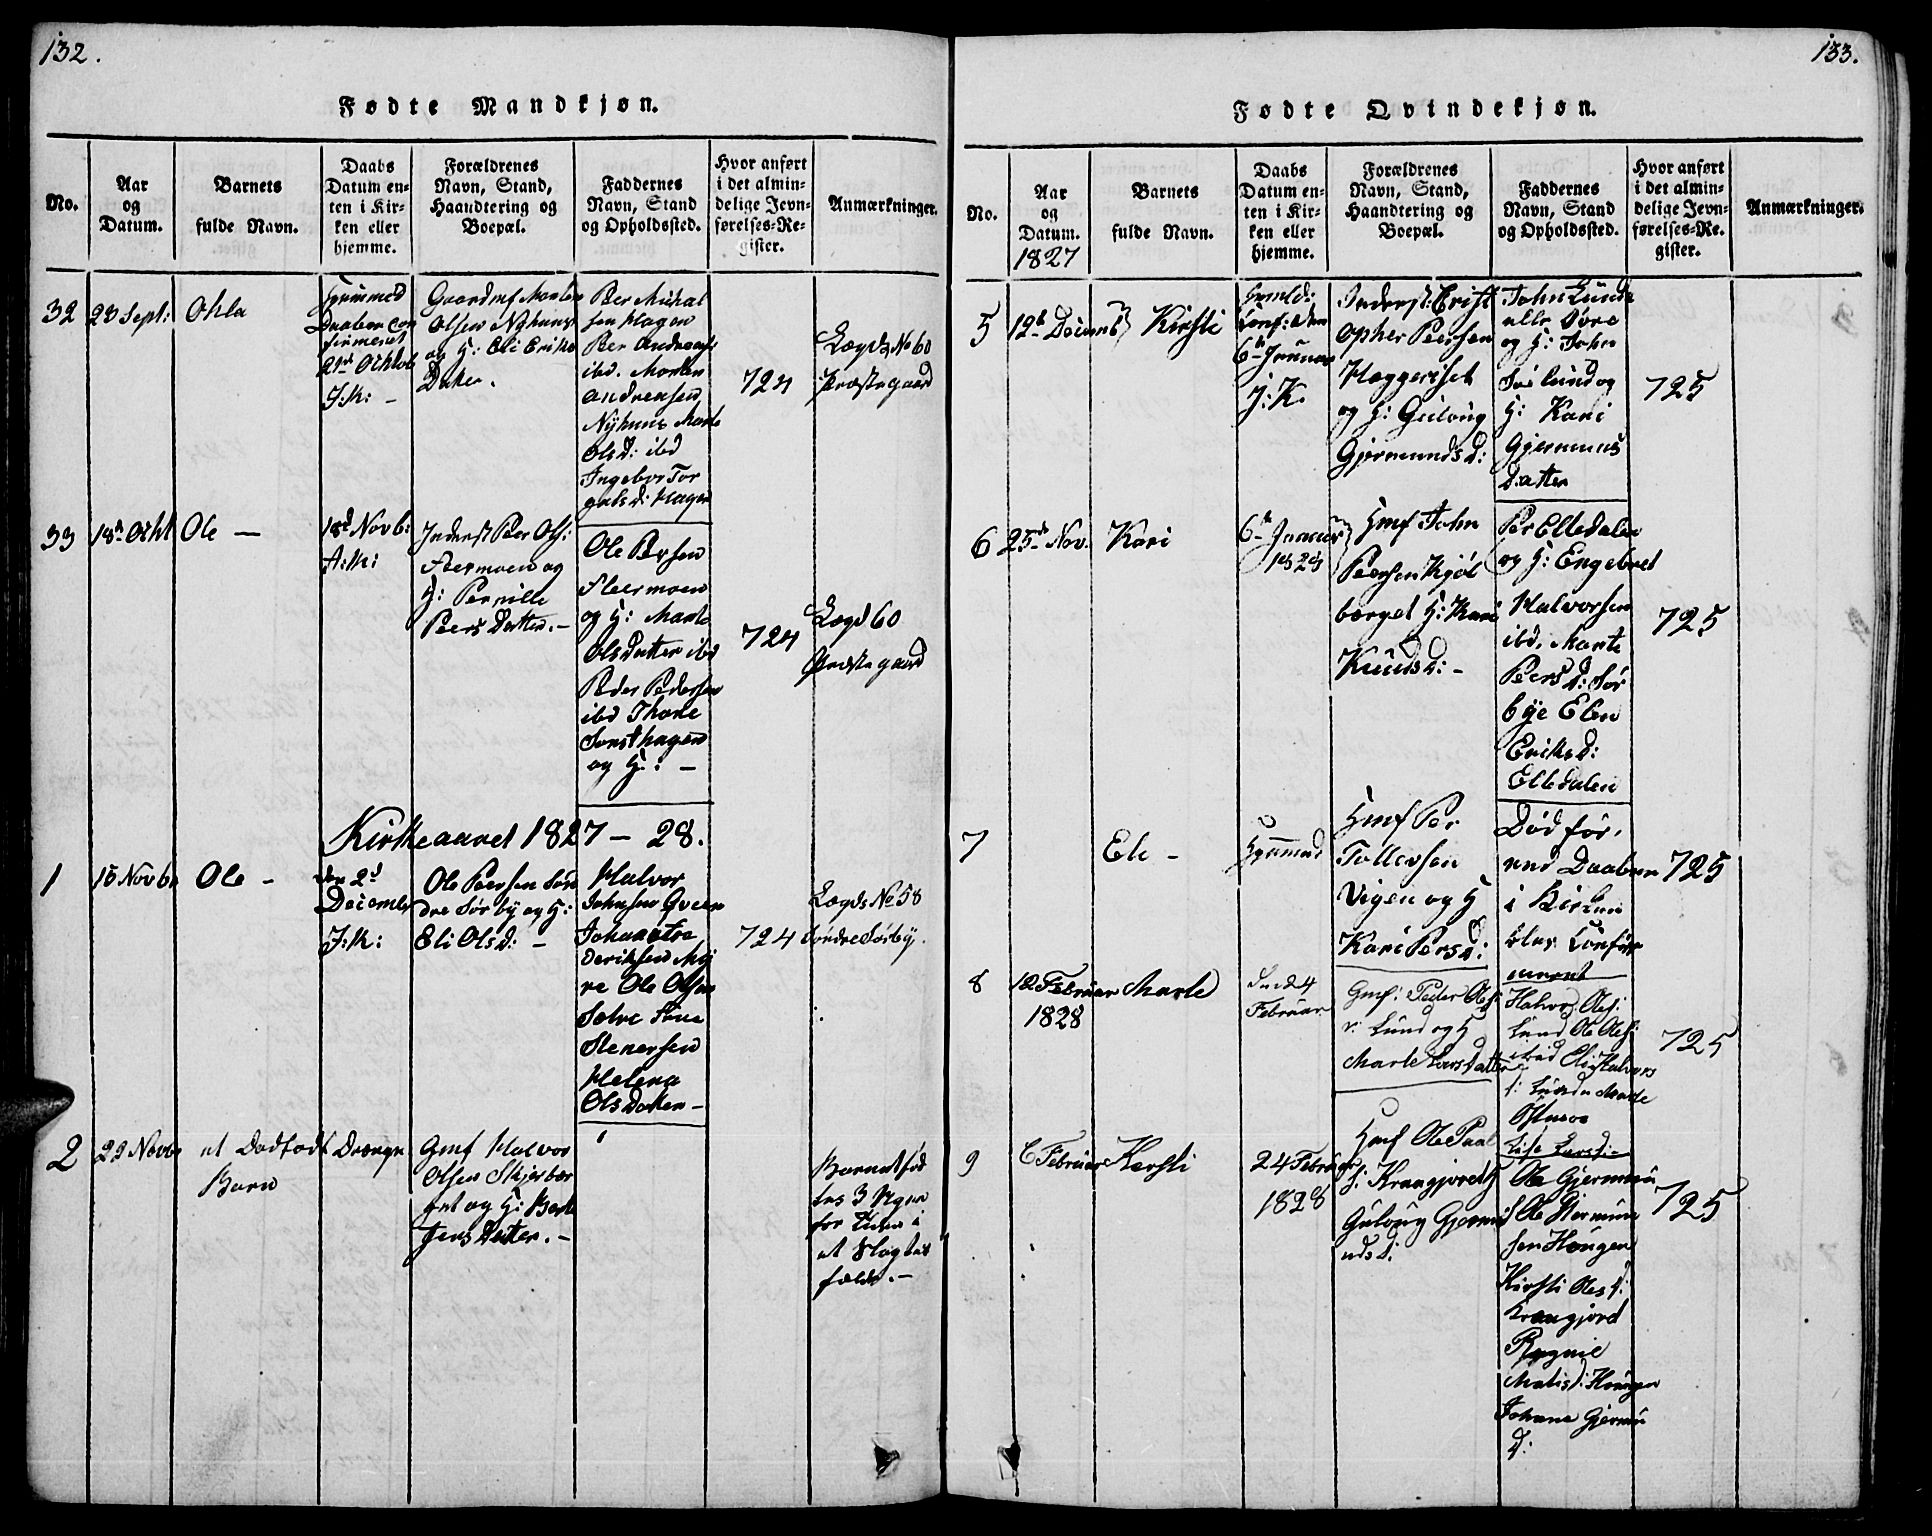 132.
Fødte Mandkjøn.
No.
Aar
og
Datum.
Barnets
fulde Navn.
Daabs
Datum en-
ten i Kir-
ken eller
hjemme.
Forældrenes
Navn, Stand,
Haandtering og
Boepæl.
Faddernes
Navn, Stand
og Opholdssted.
Hvor anført
i det almin-
delige Jevn-
førelses-Re-
gister.
Anmærkninger.
32
28 Sept:
Ohla
Daaben con
firmeret
21de Octob
Gaardmf Morten
Olsen Nyhuus
og H: Eli Eriks
Datter.
Per Michal
sen Hagen
Per Andreas
ibd. Morten
Andreasen
Nyhuus Marte
Ols D: ibd
Ingebor Tor
galsd: Hagen
724
Lægds No 60
Præstegaard
33
18de Octbr
Ole —
18d Novb:
A:K:
Inderst Peer Ols:
Stermoen og
H: Pernille
Peers Datter. —
Ole Persen
Stermoen
og H: Marte
Olsdatter ibd
Peder Pedersen
ibd Thore
Sorsthagen
og H: —
724
Lægd 60
Præstegaard
Kirkeaaret 1827 — 28.
1
16 Novbr
Ole —
den 2d
December
Ole Peersen Søn
dre Sørby og H:
Eli Ols D: —
Halvor
Johnsen Qveen
re Ole Olsen
Stenersen
Helena
Olsdatter —
724
Lægds No 58
Søndre Sørby.
2
29 Novbr
et Dødfødt Drænge
Barn
Gmf Halvor
Olsen Skjerber
get og H: Berte
Jens Datter. —
Barnet fød
tes 3 Uger
for Tiden i
et Slagtil
fælde. —
133.
Fødte Qvindekjøn.
No.
Aar
og
Datum.
1827
Barnets
fulde Navn.
Daabs
Datum en-
ten i Kir-
ken eller
hjemme.
Forældrenes
Navn, Stand,
Haandtering og
Boepæl.
Faddernes
Navn, Stand
og Opholdssted.
Hvor anført
i det almin-
delige Jevn-
førelses-Re-
gister.
Anmærkninger.
5
12t Decemb
Kirsti
Conf: den
6te Januar
J: K.
Inderst: Crist
opher Peersen
Haggeriset
og H: Guloug
Gjermunds D:
John Lunde
og H: John
H: Kari
Gjermuns
Datter
725
6
25de Nov.
Kari
6te Januar
1828
Hmf John
Peersen Kjøl
berget H: Kari
Knuds D: —
Per Elledalen
og H: Engebret
Halvorsen
ibd. Marte
Peers D: Sør
bye Elen
Eriks D:
Elledalen
725
7
Eli —
Hjemmed
Hmf Per
Tollevsen
Vigen og H
Kari Pers D:
Død før,
end Daaben
i Kirken
blev Confir
meret
725
8
12 Februar
1828
Marte
Februar
Gmf: Peder Ols:
Lund og H
Marte Lars datter
Halvor Ols:
Lund Ole Ols:
ibid Eli Halvors
D: Lunde Marte
Lise Lars d: —
725
9
6 Februar
Kersti
24 Februar
1828
Hmf Ole Paal
s: Krangjordet
Guloug Gjermu
nds D:
Ole Gjermun
s Ole Gjermun
sen Haugen
Kirsti Oles d:
Krangjord
Ragnie
Matis d: Haugen
Johane Gjermu
d:
725